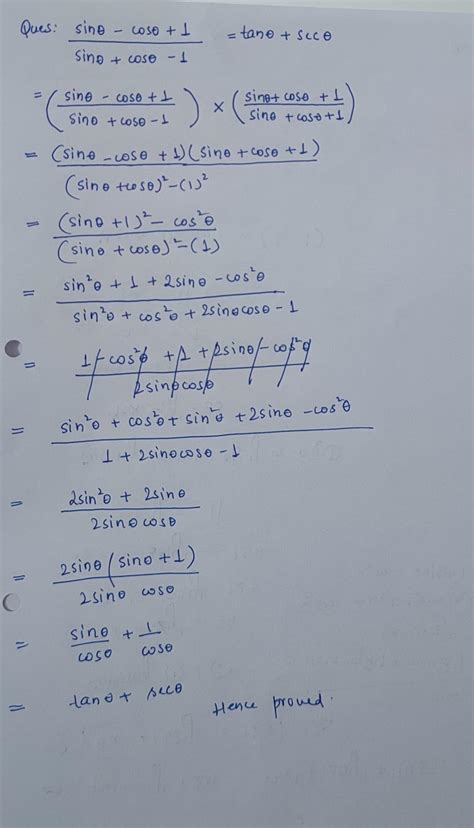 Ques: (sinθ - cosθ + 1)/(sinθ + cosθ - 1) = tanθ + secθ
= ((sinθ - cosθ + 1)/(sinθ + cosθ - 1)) × ((sinθ + cosθ + 1)/(sinθ + cosθ + 1))
= (sinθ - cosθ + 1)(sinθ + cosθ + 1)/((sinθ + cosθ)² - (1)²)
= ((sinθ + 1)² - cos²θ)/((sinθ + cosθ)² - (1))
= (sin²θ + 1 + 2sinθ - cos²θ)/(sin²θ + cos²θ + 2sinθcosθ - 1)
= (1 - cos²θ + 1 + 2sinθ - cos²θ)/(2sinθcosθ)
= (sin²θ + cos²θ + sin²θ + 2sinθ - cos²θ)/(1 + 2sinθcosθ - 1)
= (2sin²θ + 2sinθ)/(2sinθcosθ)
= 2sinθ(sinθ + 1)/(2sinθ cosθ)
= sinθ/cosθ + 1/cosθ
= tanθ + secθ Hence proved.